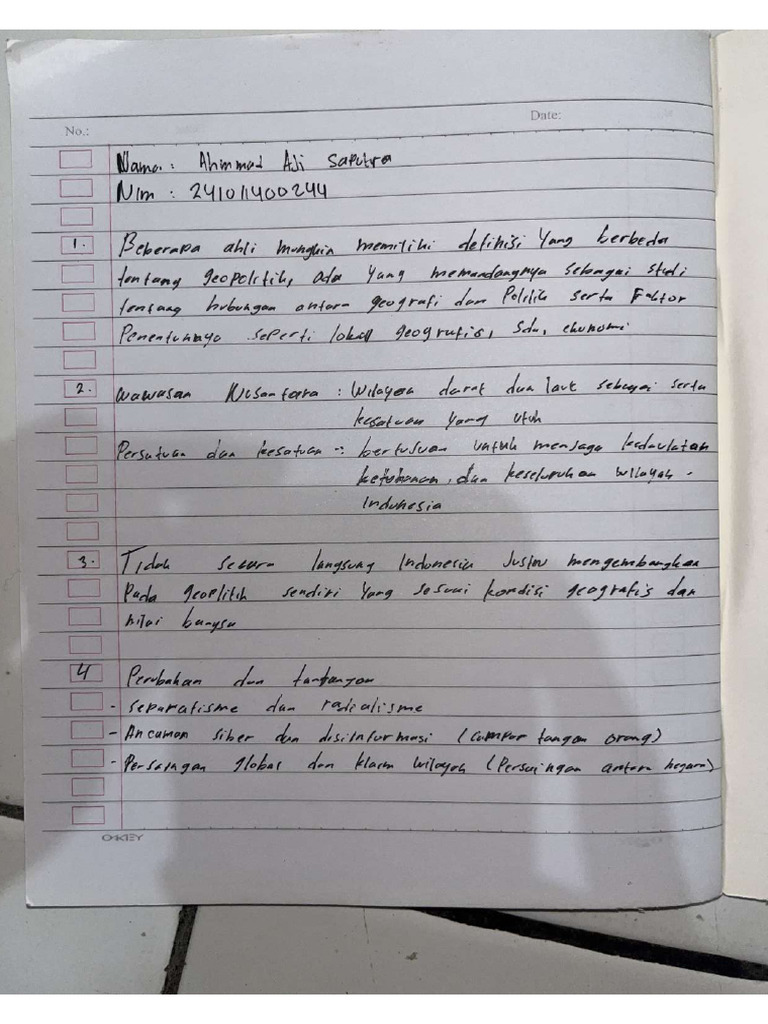 No.:
Date:
Nama : Ahmmad Aji Saputra
Nim : 241011400244
1. Beberapa ahli mungkin memiliki definisi yang berbeda
tentang geopolitik, ada yang memandangnya sebagai studi
tentang hubungan antara geografi dan Politik serta Faktor
Penentunnya seperti lokasi geografis, sda, ekonomi
2. wawasan Nusantara : Wilayah darat dan laut sebagai serta
kesatuan yang utuh
Persatuan dan kesatuan : bertujuan untuk menjaga kedaulatan
ketahanan, dan keseluruhan wilayah -
Indonesia
3. Tidak secara langsung Indonesia justru mengembangkan
Pada geoplitik sendiri yang sesuai kondisi geografis dan
nilai bangsa
4 Perubahan dan tantangan
- separatisme dan radialisme
- Ancaman siber dan disinformasi (campur tangan orang)
- Persaingan global dan klaim wilayah (Persaingan antara negara)
OKEY